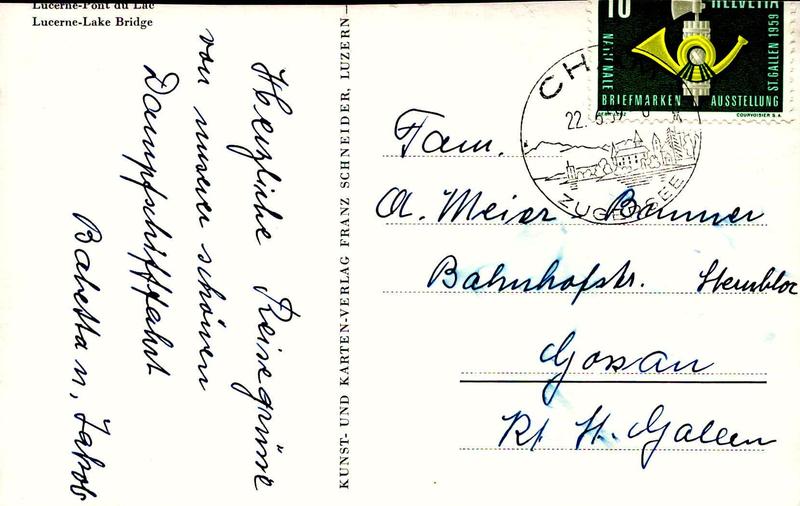 Lucerne-Pont du Lac
Lucerne-Lake Bridge
Herzliche Reisegrüsse
von unserer schönen
Dampfschifffahrt
Babetta u. Jakob
KUNST- UND KARTEN-VERLAG FRANZ SCHNEIDER, LUZERN
10
HELVETIA
NATIONALE
BRIEFMARKEN AUSSTELLUNG
ST. GALLEN 1959
COURVOISIER S.A.
CH
22.
ZUGERSEE
Fam.
A. Meier - Banner
Bahnhofstr. Sternbloc
Gossau
Kt St. Gallen